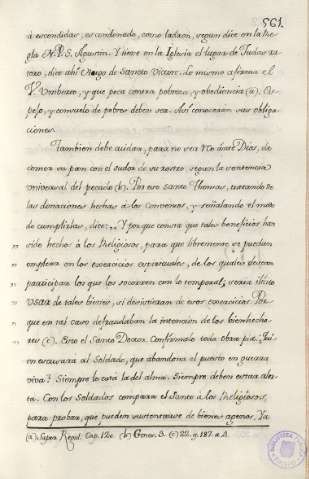 561.
á escondidas, es condenado, como ladron, segun dice en la Re-
gla N. P. S. Agustin. Y tiene en la Iglesia el lugar de Judas ra-
tero, dice ahi Hugo de Sancto Victore. Lo mismo afirma el
V. Umberto, y que peca contra pobreza, y obediencia (a). Es-
pejo, y consuelo de pobres deben ser. Asi conocerán sus obliga-
ciones.
Tambien debe cuidar, para no ser
comer su pan con el sudor de su rostro segun la sentencia
universal del pecado (b). Por eso santo Thomas, tratando de
las donaciones hechas á los Conventos, y señalando el modo
de cumplirlas, dice: Y porque consta que tales beneficios han
sido hechos á los Religiosos, para que libremente se puedan
emplear en los exercicios espirituales, de los quales desean
participar los que los socorren con lo temporal, seria ilicito
usar de tales bienes, si desistieran de esos exercicios. Por
que en tal caso defraudaban la intencion de los bienhecho-
res (c). Esto el Santo Doctor. Confirmalo toda obra pia. Quien
escusara al Soldado, que abandona el puesto en guerra
viva? Siempre lo está la del alma. Siempre deben estar aler-
ta. Con los Soldados compara el Santo á los Religiosos,
para probar, que pueden sustentarse de bienes agenos. Ya
(a) Supra Regul. Cap. 120. (b) Genes. 3. (c) 22. q. 187. a. 4.